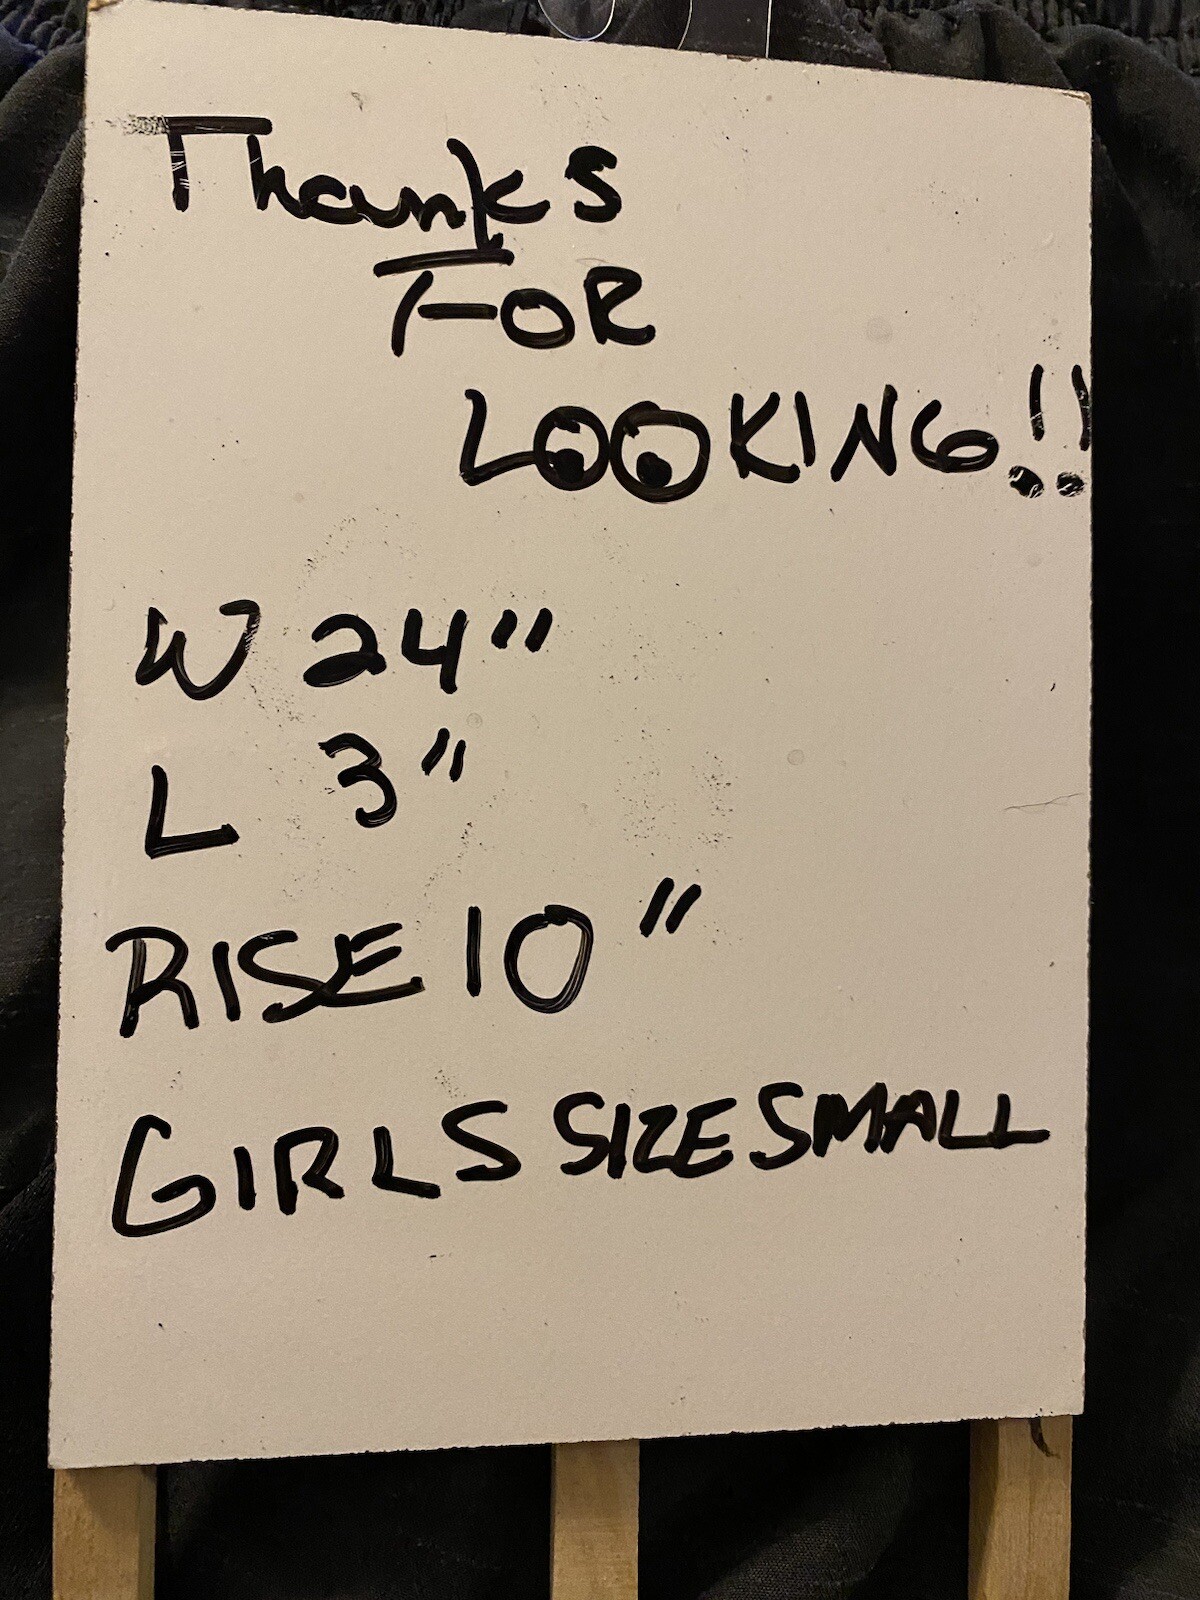 Thanks
FOR
LOOKING!!
W 24"
L 3"
RISE 10"
GIRLS SIZE SMALL